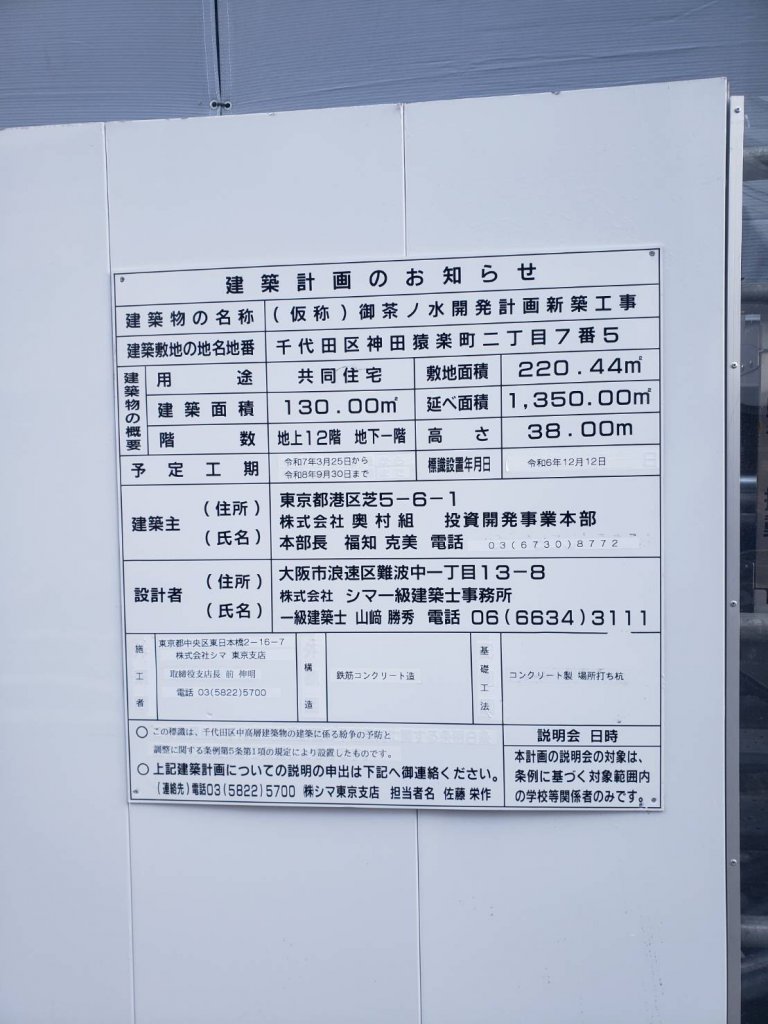 建築計画のお知らせ
建築物の名称 (仮称)御茶ノ水開発計画新築工事
建築敷地の地名地番 千代田区神田猿楽町二丁目7番5
建築物の概要
用途 共同住宅 敷地面積 220.44㎡
建築面積 130.00㎡ 延べ面積 1,350.00㎡
階数 地上12階 地下一階 高さ 38.00m
予定工期 令和7年3月25日から
令和8年9月30日まで
標識設置年月日 令和6年12月12日
建築主 (住所) 東京都港区芝5-6-1
(氏名) 株式会社 奥村組 投資開発事業本部
本部長 福知 克美 電話 03(6730)8772
設計者 (住所) 大阪市浪速区難波中一丁目13-8
(氏名) 株式会社 シマ一級建築士事務所
一級建築士 山﨑 勝秀 電話 06(6634)3111
施工者
東京都中央区東日本橋2-16-7
株式会社シマ 東京支店
取締役支店長 前 伸明
電話 03(5822)5700
構造 鉄筋コンクリート造
基礎工法 コンクリート製 場所打ち杭
○ この標識は、千代田区中高層建築物の建築に係る紛争の予防と
調整に関する条例第5条第1項の規定により設置したものです。
○ 上記建築計画についての説明の申出は下記へ御連絡ください。
(連絡先)電話03(5822)5700 ㈱シマ東京支店 担当者名 佐藤 栄作
説明会 日時
本計画の説明会の対象は、
条例に基づく対象範囲内
の学校等関係者のみです。